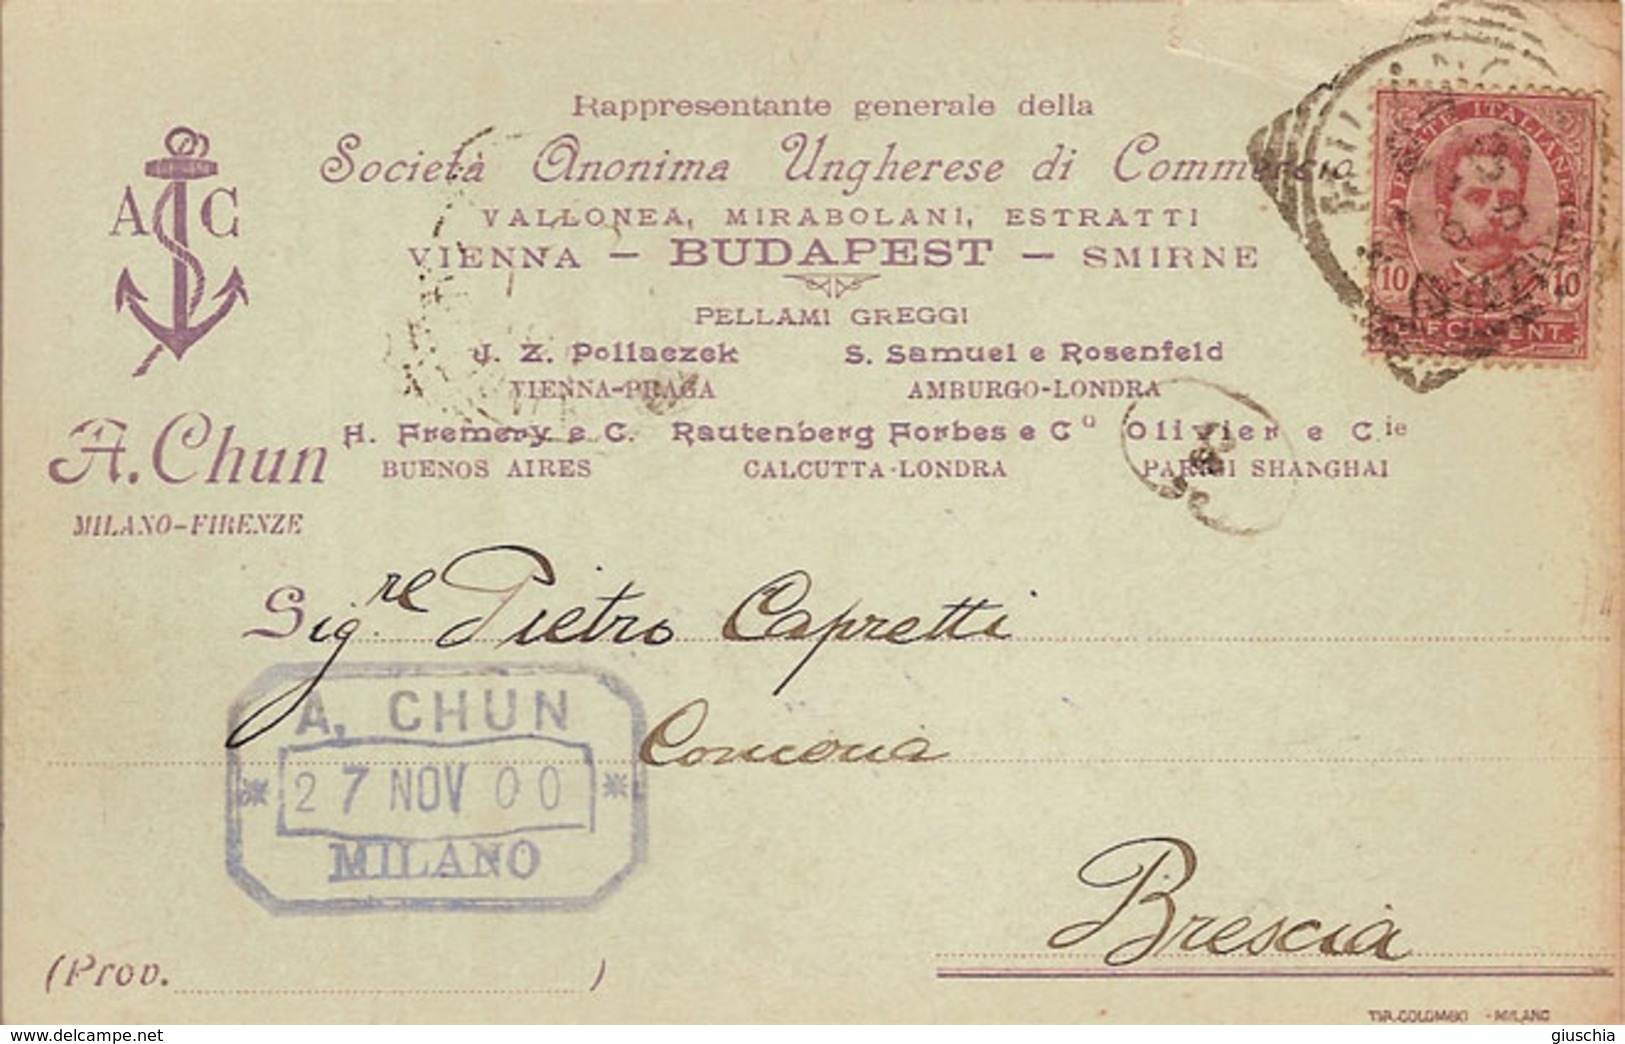 Rappresentante generale della
Società Anonima Ungherese di Commercio
VALLONEA, MIRABOLANI, ESTRATTI
VIENNA — BUDAPEST — SMIRNE
A C
PELLAMI GREGGI
J. Z. Pollaczek S. Samuel e Rosenfeld
VIENNA-PRAGA AMBURGO-LONDRA
H. Fremery e C. Rautenberg Forbes e Cº Olivier e Cie
BUENOS AIRES CALCUTTA-LONDRA PARIGI SHANGHAI
A. Chun
MILANO-FIRENZE
POSTE ITALIANE
10 10
CENT.
Sigre Pietro Capretti
A. CHUN
27 NOV 00
MILANO
Brescia
(Prov. )
TIP. COLOMBO - MILANO
delcampe.net
giuschia